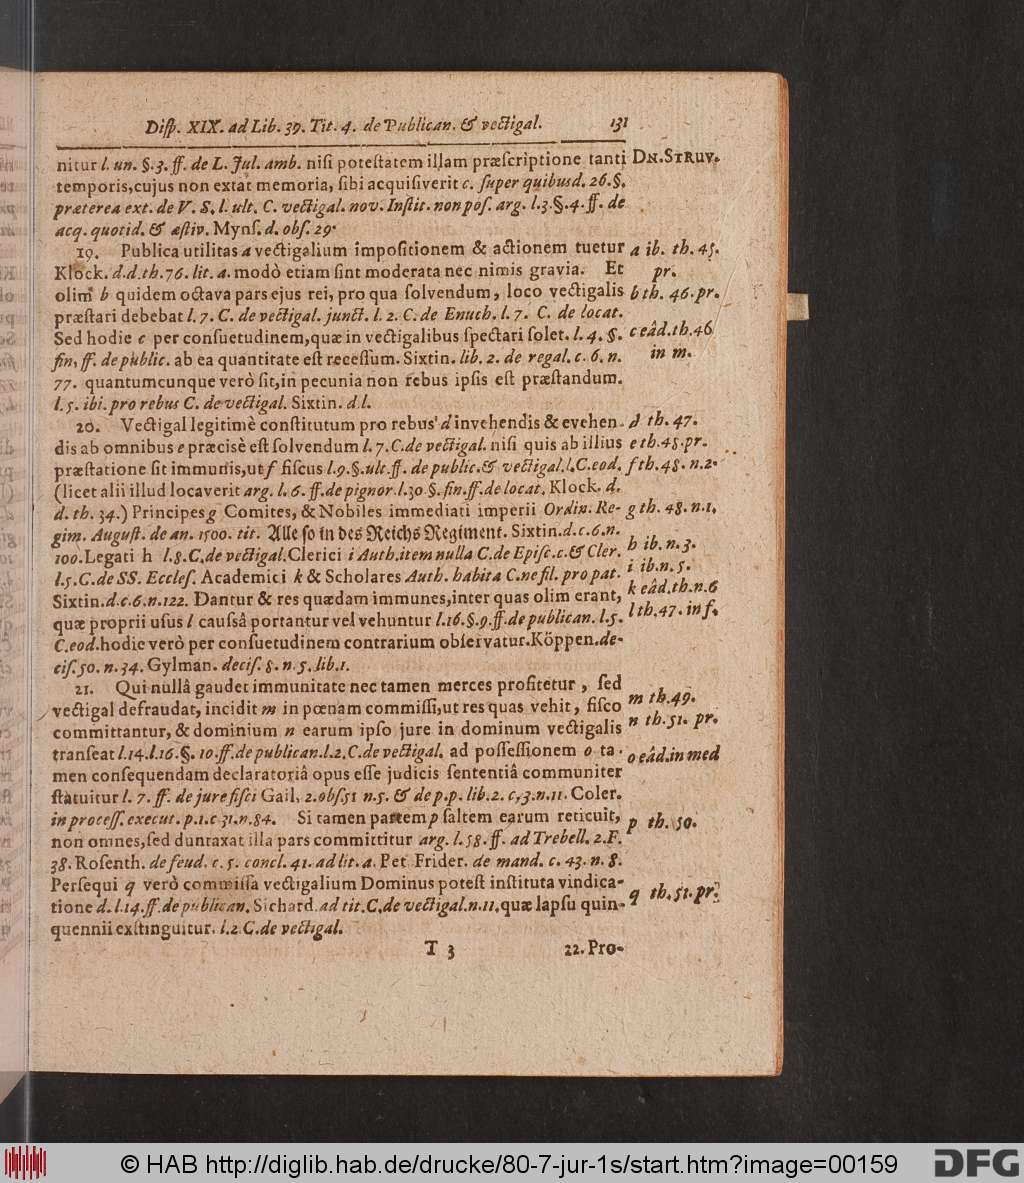 Disp. XIX. ad Lib. 39. Tit. 4. de Publican. & vectigal. 131
nitur l. un. §. 3. ff. de L. Jul. amb. nisi potestatem illam præscriptione tanti DN. STRUV.
temporis, cujus non extat memoria, sibi acquisiverit c. super quibusd. 26. §.
præterea ext. de V. S. l. ult. C. vectigal. nov. Instit. non pos. arg. l. 3. §. 4. ff. de
acq. quotid. & æstiv. Myns. d. obs. 29.
19. Publica utilitas a vectigalium impositionem & actionem tuetur a ib. th. 45.
Klock. d. d. th. 76. lit. a. modò etiam sint moderata nec nimis gravia. Et pr.
olim b quidem octava pars ejus rei, pro qua solvendum, loco vectigalis b th. 46. pr.
præstari debebat l. 7. C. de vectigal. junct. l. 2. C. de Eunuch. l. 7. C. de locat.
Sed hodie c per consuetudinem, quæ in vectigalibus spectari solet. l. 4. §. c eâd. th. 46
fin, ff. de public. ab ea quantitate est recessum. Sixtin. lib. 2. de regal. c. 6. n. in m.
77. quantumcunque verò sit, in pecunia non rebus ipsis est præstandum.
l. 5. ibi. pro rebus C. de vectigal. Sixtin. d. l.
20. Vectigal legitimè constitutum pro rebus d invehendis & evehen- d th. 47.
dis ab omnibus e præcisè est solvendum l. 7. C. de vectigal. nisi quis ab illius e th. 45. pr.
præstatione sit immunis, ut f fiscus l. 9. §. ult. ff. de public. & vectigal. l. C. eod. f th. 48. n. 2.
(licet alii illud locaverit arg. l. 6. ff. de pignor. l. 30 §. fin. ff. de locat. Klock. d.
d. th. 34.) Principes g Comites, & Nobiles immediati imperii Ordin. Re- g th. 48. n. 1,
gim. August. de an. 1500. tit. Alle so in des Reichs Regiment. Sixtin. d. c. 6. n.
100. Legati h l. 8. C. de vectigal. Clerici i Auth. item nulla C. de Episc. c. & Cler. h ib. n. 3.
l. 5. C. de SS. Eccles. Academici k & Scholares Auth. habita C. ne fil. pro pat. i ib. n. 5.
Sixtin. d. c. 6. n. 122. Dantur & res quædam immunes, inter quas olim erant, k eâd. th. n. 6
quæ proprii usus l caussâ portantur vel vehuntur l. 16. §. 9. ff. de publican. l. 5. l th. 47. in f.
C. eod. hodie verò per consuetudinem contrarium observatur. Köppen. de-
cis. 50. n. 34. Gylman. decis. 8. n. 5. lib. 1.
21. Qui nullâ gaudet immunitate nec tamen merces profitetur, sed
vectigal defraudat, incidit m in pœnam commissi, ut res quas vehit, fisco m th. 49.
committantur, & dominium n earum ipso jure in dominum vectigalis n th. 51. pr.
transeat l. 14. l. 16. §. 10. ff. de publican. l. 2. C. de vectigal. ad possessionem o ta- o eâd. in med
men consequendam declaratoriâ opus esse judicis sententiâ communiter
statuitur l. 7. ff. de jure fisci Gail. 2. obs 51 n. 5. & de p. p. lib. 2. c. 3. n. 11. Coler.
in process. execut. p. 1. c 31. n. 84. Si tamen partem p saltem earum reticuit, p th. 50.
non omnes, sed duntaxat illa pars committitur arg. l. 58. ff. ad Trebell. 2. F.
38. Rosenth. de feud. c. 5. concl. 41. ad lit. a. Pet Frider. de mand. c. 43. n. 8.
Persequi q verò commissa vectigalium Dominus potest instituta vindica- q th. 51. pr.
tione d. l. 14. ff. de publican. Sichard. ad tit. C. de vectigal. n. 11. quæ lapsu quin-
quennii exstinguitur. l. 2 C. de vectigal.
T 3 22. Pro-
© HAB http://diglib.hab.de/drucke/80-7-jur-1s/start.htm?image=00159 DFG